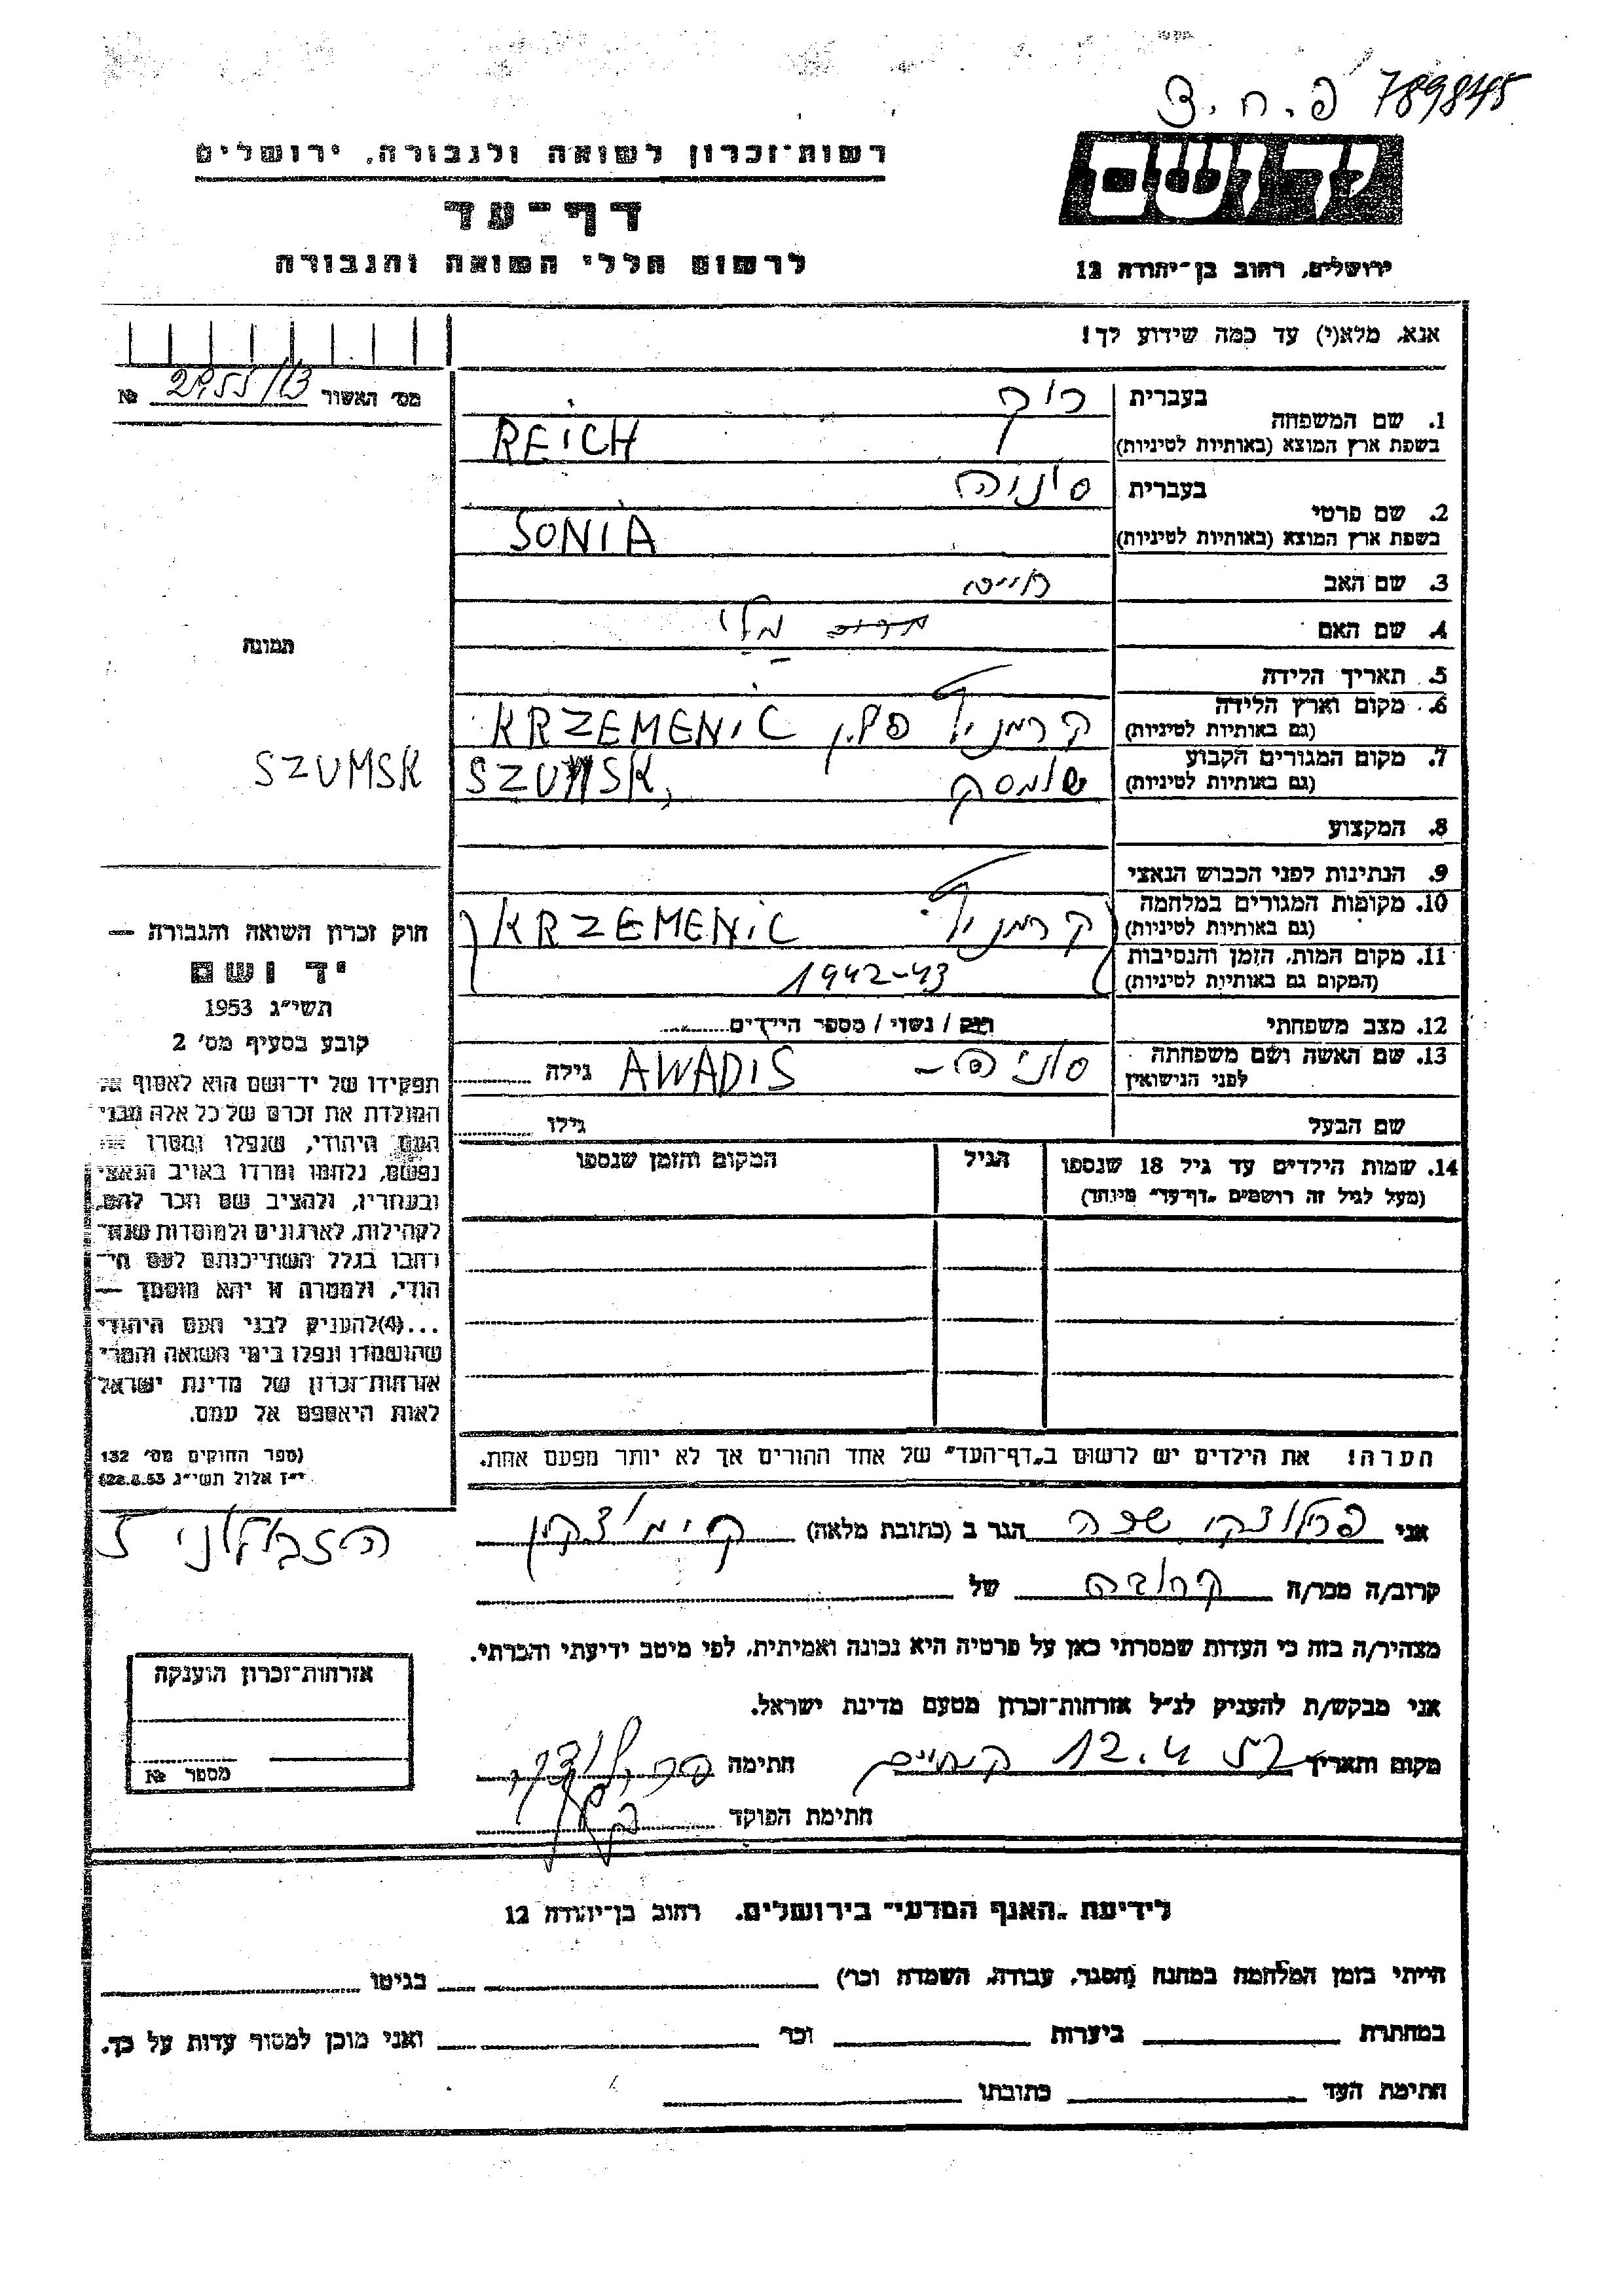 789845 פ.ח.צ
יד ושם
רשות־זכרון לשואה ולגבורה, ירושלים
דף־עד
לרשום חללי השואה והגבורה
ירושלים, רחוב בן־יהודה 12
אנא, מלא(י) עד כמה שידוע לך!
מס' האשור №
1. שם המשפחה
בעברית
בשפת ארץ המוצא (באותיות לטיניות) REICH
2. שם פרטי
בעברית סוניה
בשפת ארץ המוצא (באותיות לטיניות) SONIA
3. שם האב חיים
4. שם האם
5. תאריך הלידה
6. מקום וארץ הלידה
(גם באותיות לטיניות) KRZEMENIC
7. מקום המגורים הקבוע
(גם באותיות לטיניות) שומסק SZUMSK,
SZUMSK
תמונה
8. המקצוע
9. הנתינות לפני הכבוש הנאצי
10. מקומות המגורים במלחמה
(גם באותיות לטיניות) KRZEMENIC
11. מקום המות, הזמן והנסיבות
(המקום גם באותיות לטיניות) 1942-43
12. מצב משפחתי רוק / נשוי / מספר הילדים
13. שם האשה ושם משפחתה סוניה - AWADIS גילה
לפני הנישואין
שם הבעל גילו
14. שמות הילדים עד גיל 18 שנספו הגיל המקום והזמן שנספו
(מעל לגיל זה רושמים „דף־עד" מיוחד)
הערה! את הילדים יש לרשום ב„דף־העד" של אחד ההורים אך לא יותר מפעם אחת.
חוק זכרון השואה והגבורה —
יד ושם
תשי"ג 1953
קובע בסעיף מס' 2
תפקידו של יד־ושם הוא לאסוף אל
המולדת את זכרם של כל אלה מבני
העם היהודי, שנפלו ומסרו את
נפשם, נלחמו ומרדו באויב הנאצי
ובעוזריו, ולהציב שם וזכר להם,
לקהילות, לארגונים ולמוסדות שנח־
רבו בגלל השתייכותם לעם הי־
הודי, ולמטרה זו יהא מוסמך —
...(4)להעניק לבני העם היהודי
שהושמדו ונפלו בימי השואה והמרי
אזרחות־זכרון של מדינת ישראל
לאות היאספם אל עמם.
(ספר החוקים מס' 132
י"ז אלול תשי"ג 28.8.53)
אני הגר ב (כתובת מלאה)
קרוב/ה מכר/ה קרובה של
מצהיר/ה בזה כי העדות שמסרתי כאן על פרטיה היא נכונה ואמיתית, לפי מיטב ידיעתי והכרתי.
אני מבקש/ת להעניק לנ"ל אזרחות־זכרון מטעם מדינת ישראל.
מקום ותאריך 12.4 חתימה
חתימת הפוקד
אזרחות־זכרון הוענקה
מספר №
לידיעת „האגף המדעי" בירושלים, רחוב בן־יהודה 12
הייתי בזמן המלחמה במחנה (הסגר, עבודה, השמדה וכו') בגיטו
במחתרת ביערות וכו' ואני מוכן למסור עדות על כך.
חתימת העד כתובתו